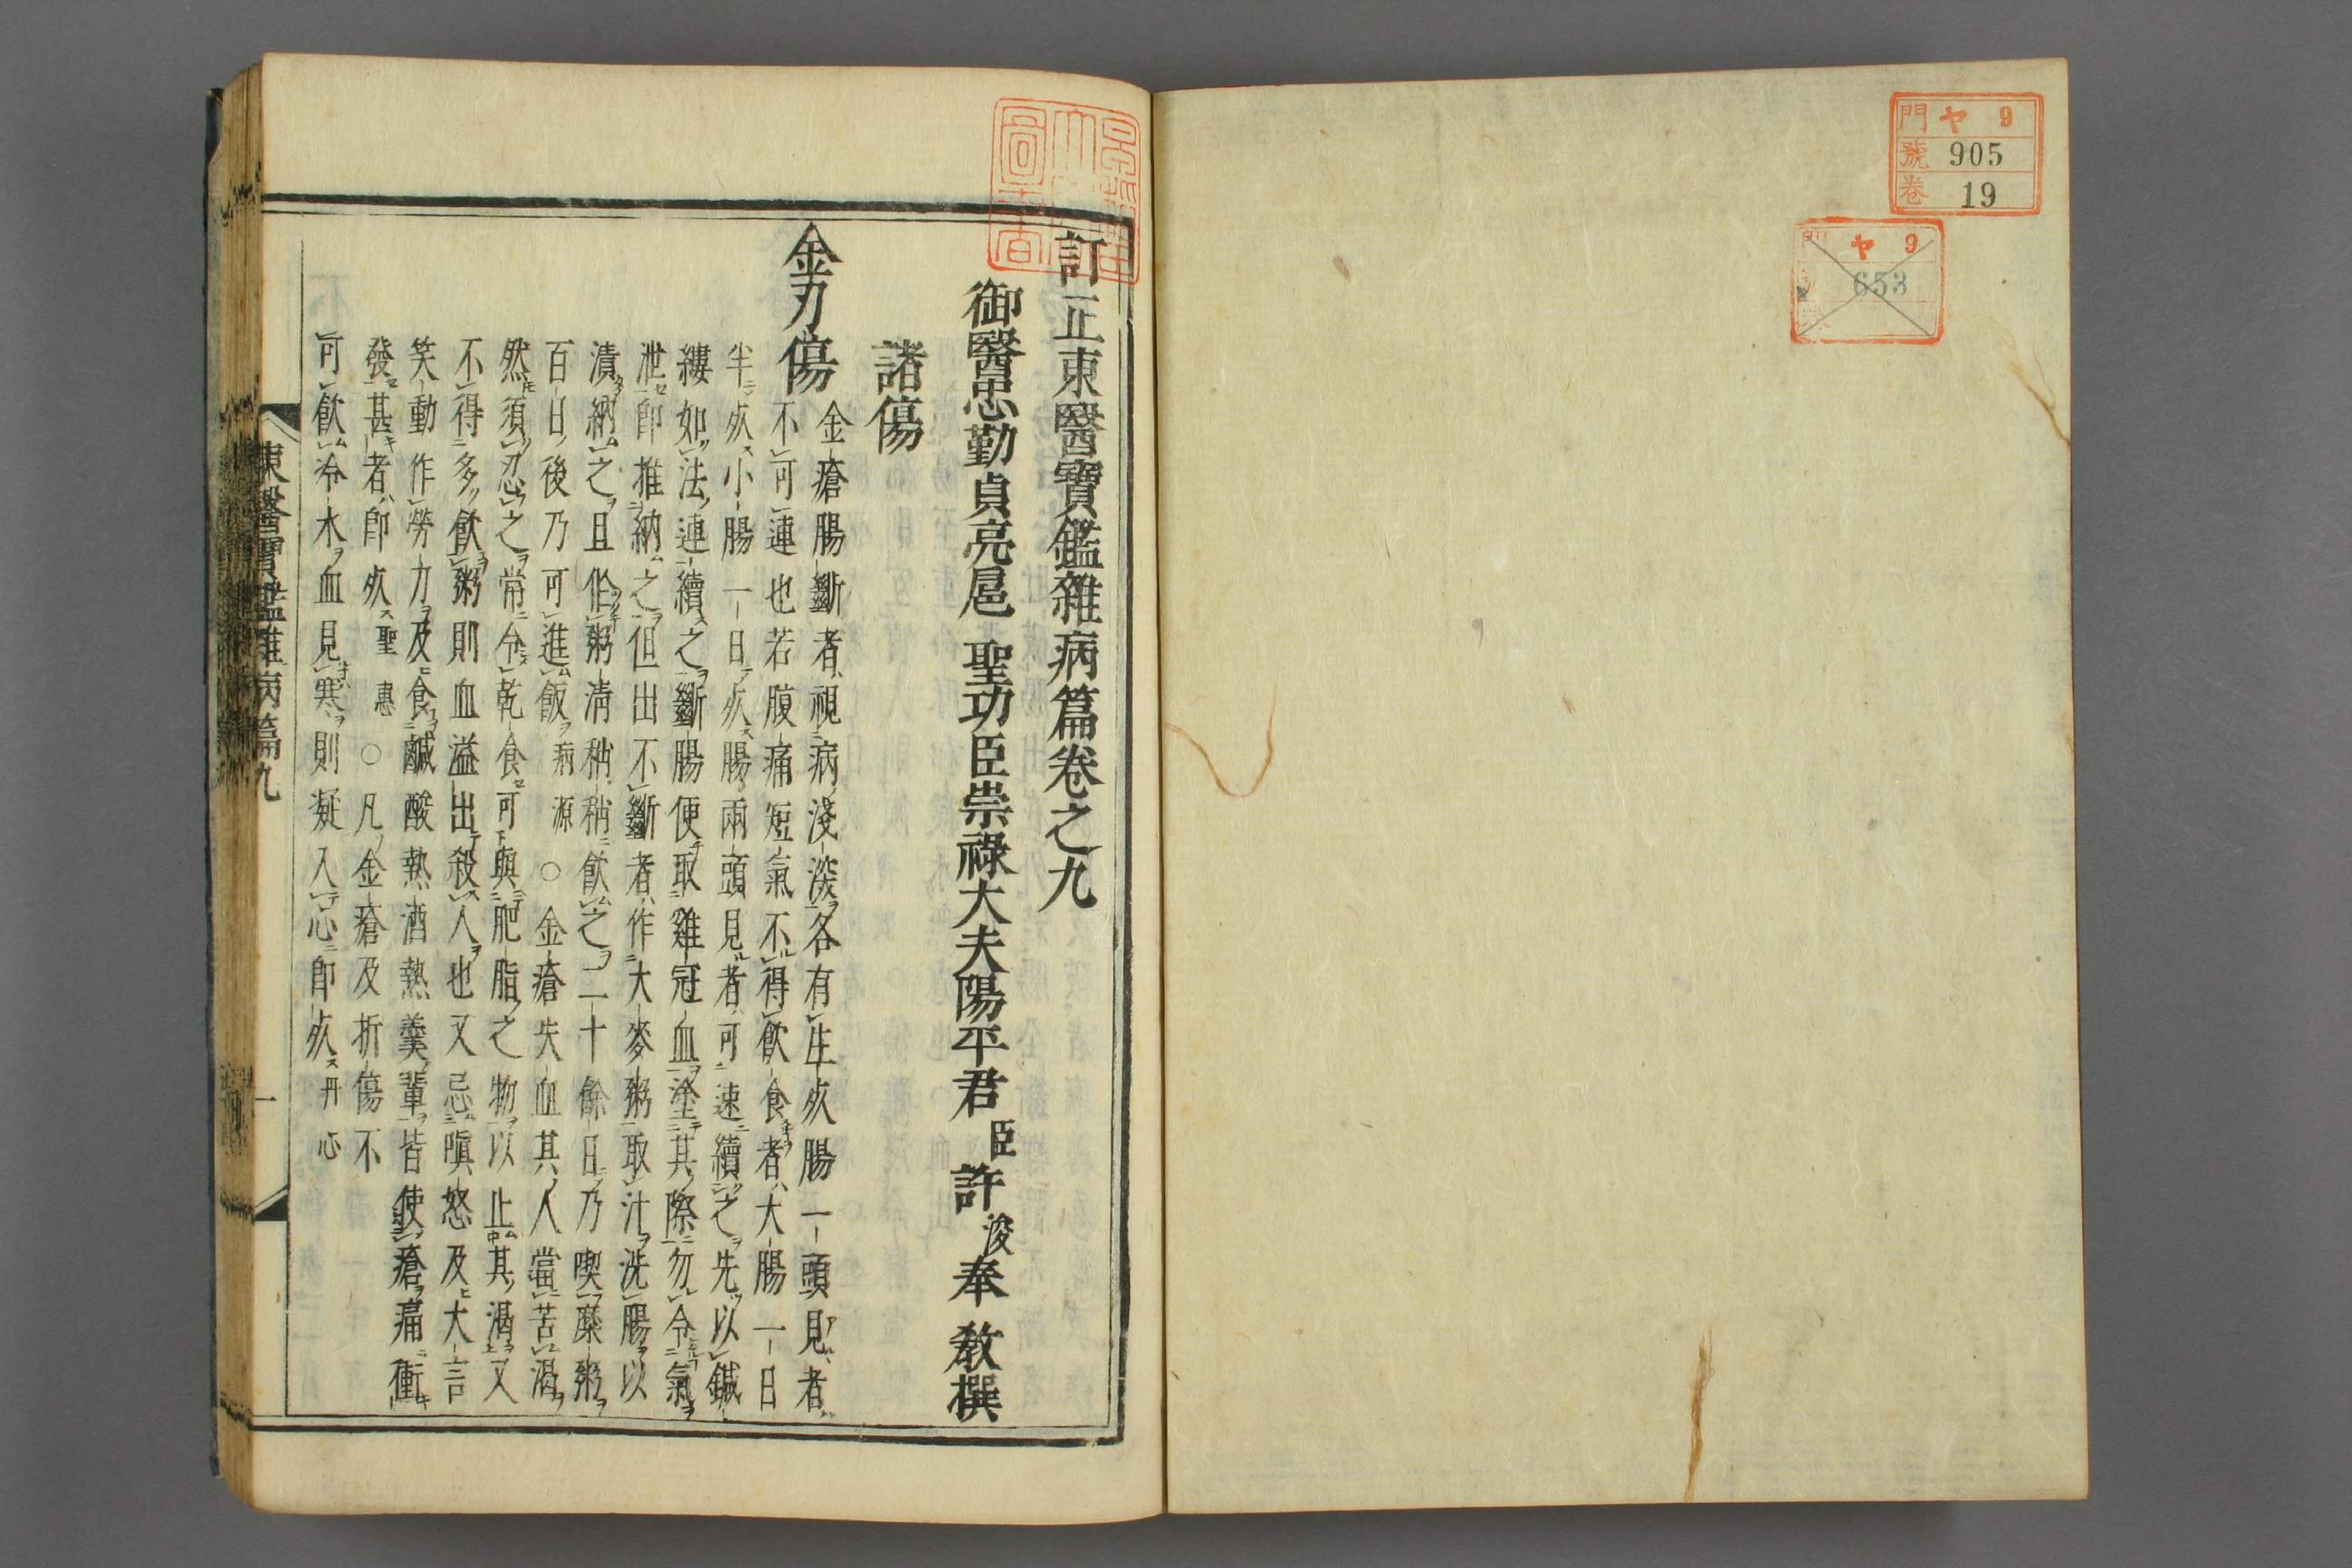 門 ヤ 9
號 905
卷 19
ヤ 9
653
訂正東醫寶鑑雜病篇卷之九
御醫忠勤貞亮扈 聖功臣崇祿大夫陽平君 臣 許 浚 奉 敎撰
諸傷
金刃傷
金瘡腸斷者視病淺深各有生死腸一頭見者
不可連也若腹痛短氣不得飮食者大腸一日
半死小腸一日死腸兩頭見者可速續之先以鍼
縷如法連續之斷腸便取雞冠血塗其際勿令氣
泄卽推納之但出不斷者作大麥粥取汁洗腸以
漬納之且作粥淸稍稍飮之二十餘日乃喫糜粥
百日後乃可進飯 病源 ○ 金瘡失血其人當苦渴
然須忍之常令乾食可與肥脂之物以止其渴又
不得多飮粥則血溢出殺人也又忌嗔怒及大言
笑動作勞力及食鹹酸熱酒熱羹輩皆使瘡痛衝
發甚者卽死 聖惠 ○ 凡金瘡及折傷不
可飮冷水血見寒則凝入心卽死 丹心
東醫寶鑑雜病篇九
一